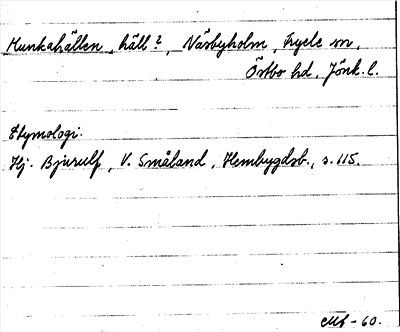 Munkahällen, häll?, Näsbyholm, Fryele sn,
Östbo hd, Jönk. l.
Etymologi.
Hj. Bjurulf, V. Småland, Hembygdsb., s. 115.
-60.